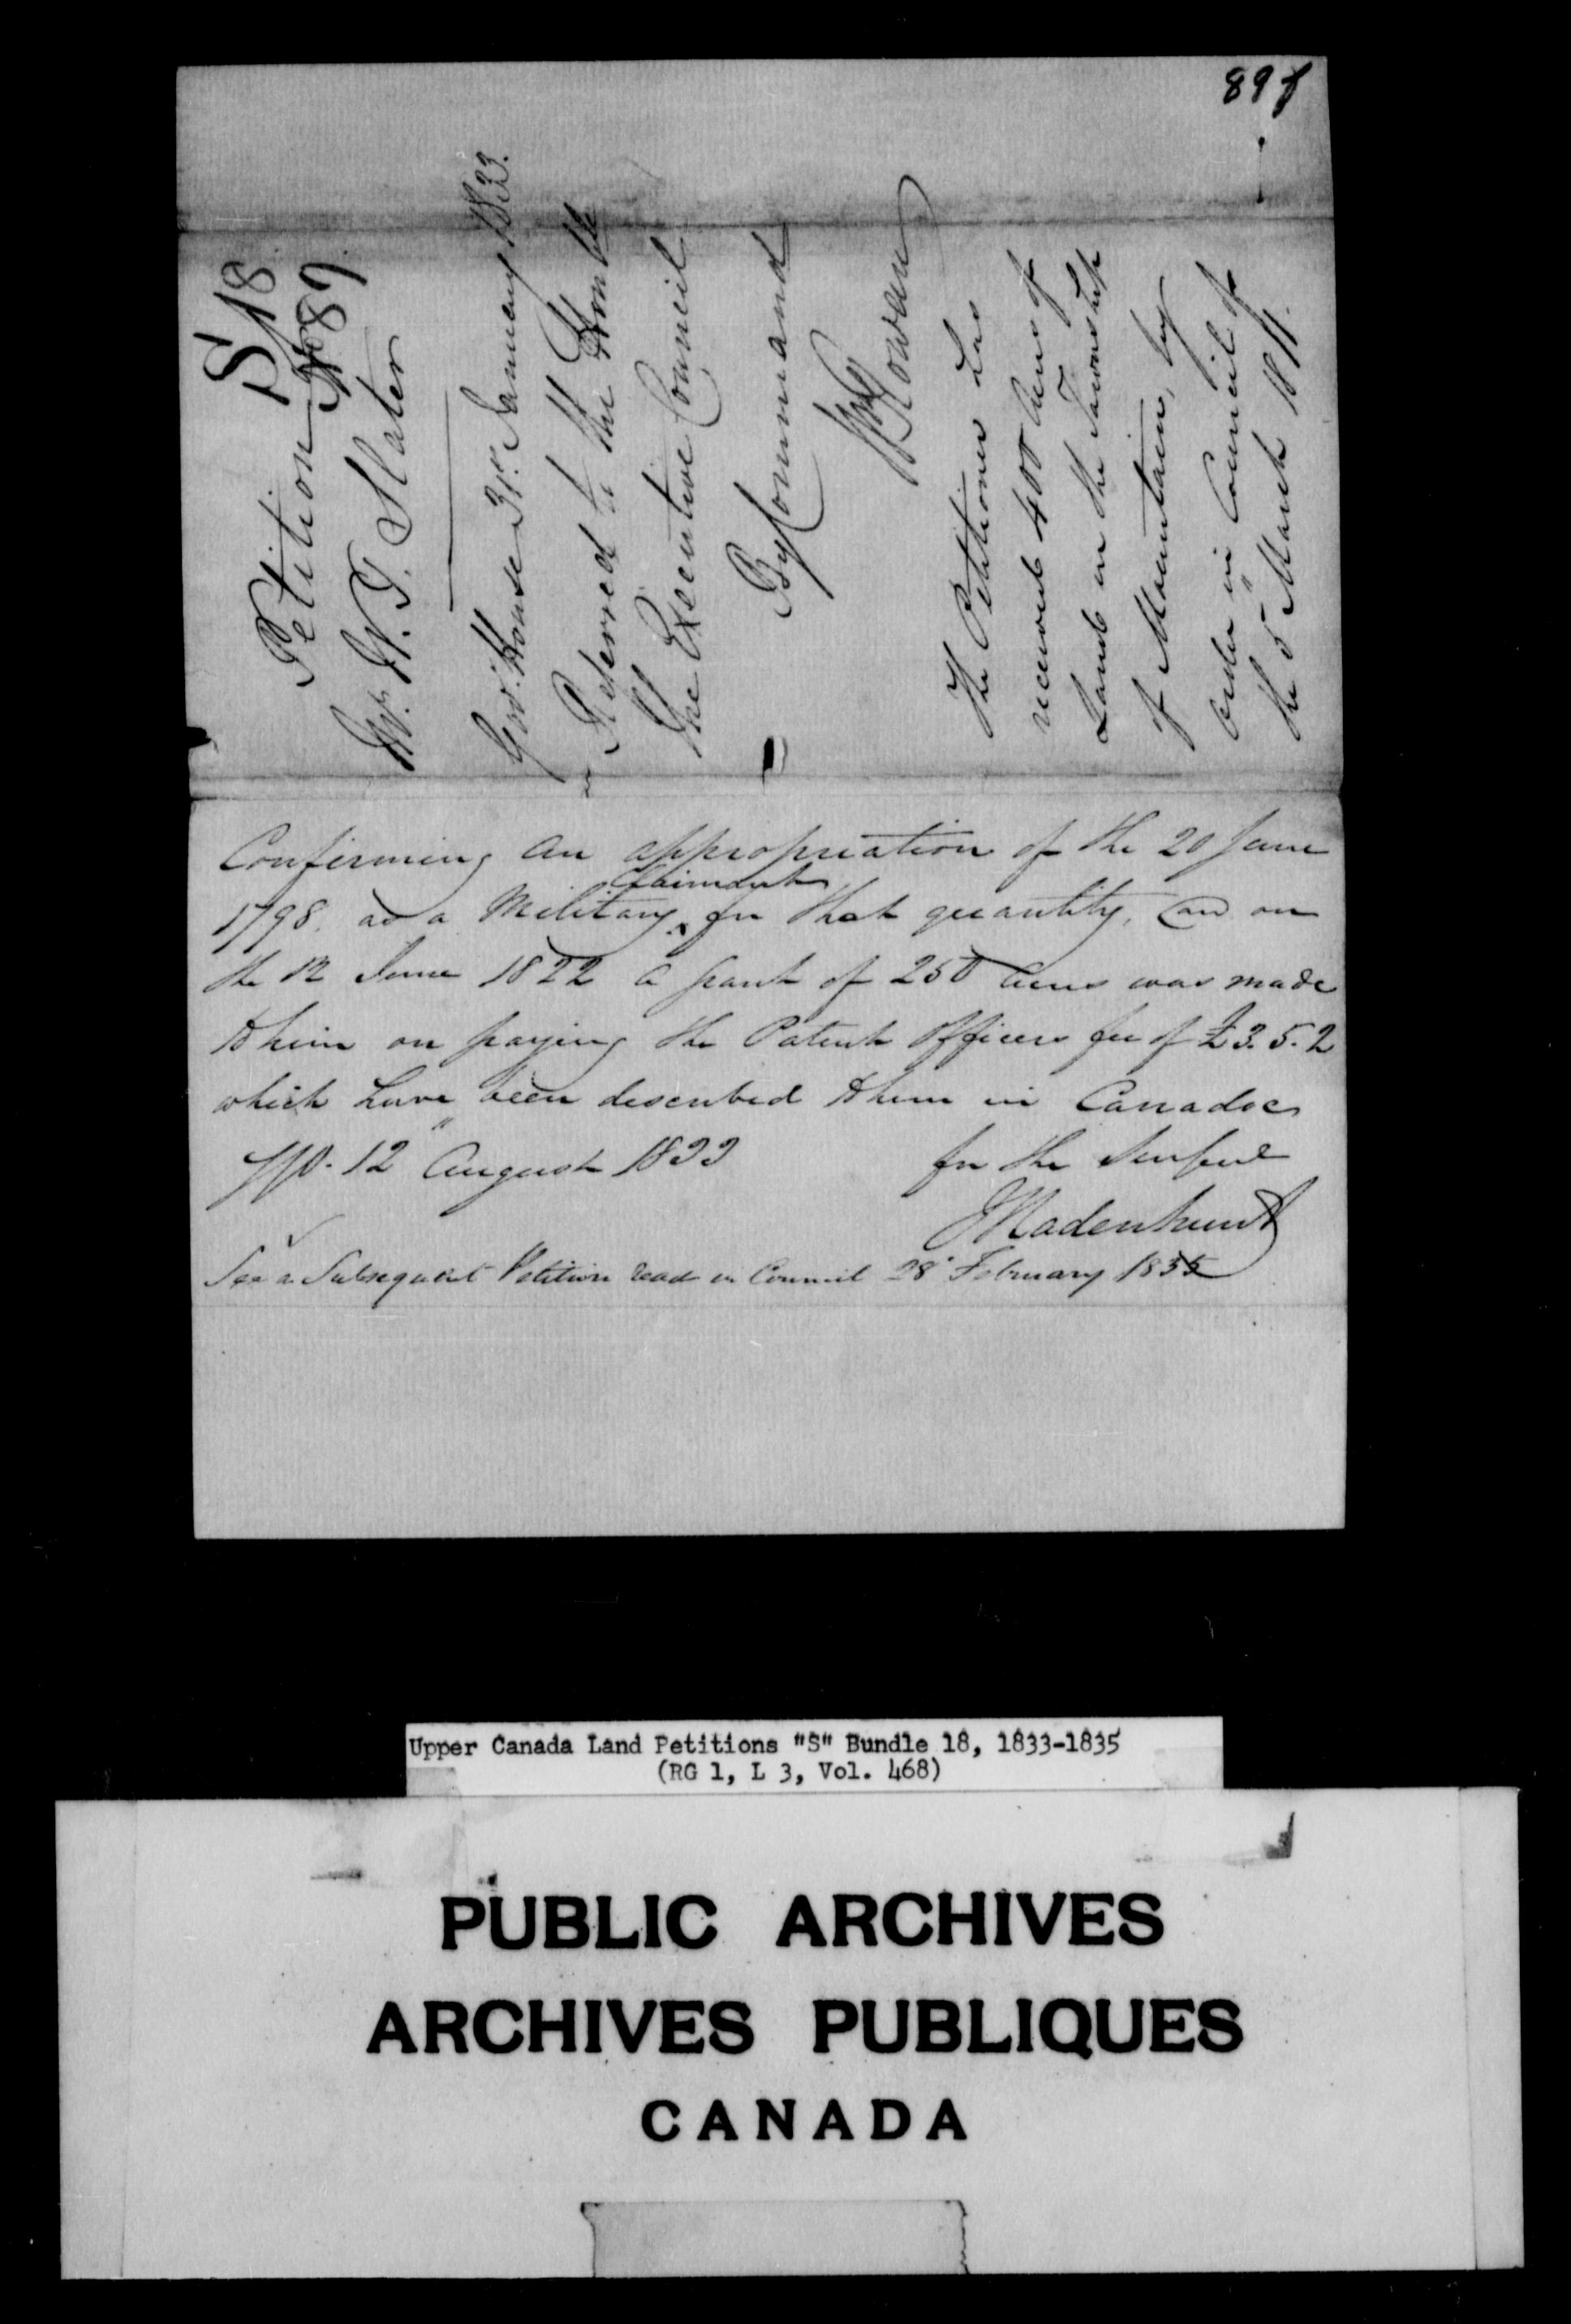 89f
S/18
Petition No 89
Mr. W. T. Slater
Govt. House 31st January 1833.
Referred to the Honble
the Executive Council
By Command
Wm Rowan
The Petitioner has
received 400 Acres of
Land in the Township
of Mountain, by
Order in Council of
the 5 March 1811.
Confirming an appropriation of the 20 June
1798. as a Military Claimant for that quantity, and on
the 12 June 1822 a grant of 250 Acres was made
to him on paying the Patent Officers fee of £3.5.2
which have been described to him in Caradoc
12 August 1833
for the
JRadenhurst
See a Subsequent Petition read in Council 28 February 1835
Upper Canada Land Petitions "S" Bundle 18, 1833-1835
(RG 1, L 3, Vol. 468)
PUBLIC ARCHIVES
ARCHIVES PUBLIQUES
CANADA